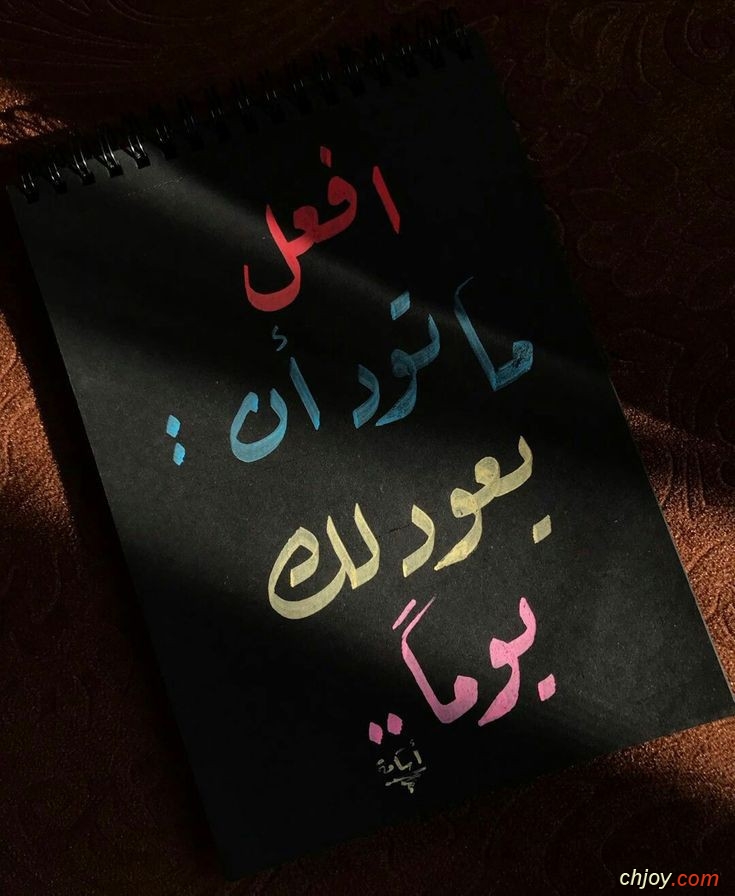 افعل
ما تود أن :
يعود لك
يوماً..
chjoy.com